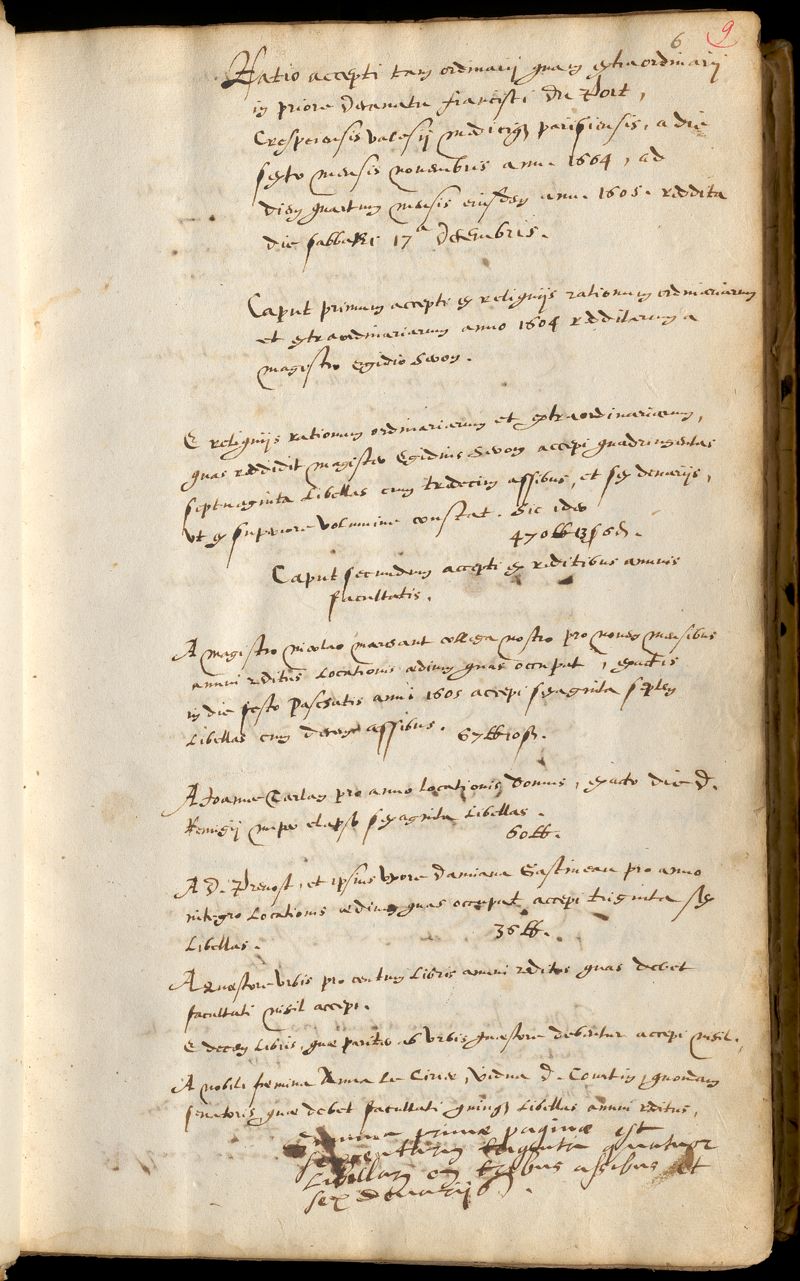 6 9
Ratio accepti tam ordinarij quam extraordinarij
in priore decanatu francisci du Port,
Crespeiensis valesij medici parisiensis, a die
sexto mensis novenbris ann. 1604, ad
diem quartum mensis eiusdem ann. 1605. reddita
die sabbati 17ª decenbris.
Caput primum accepti ex reliquijs rationum ordinariarum
et extraordinariarum anno 1604 redditarum a
magistro Egidio heron.
E reliquijs rationum ordinariarum et extraordinariarum,
quas reddidit magister Egidius heron accepi quadringentas
septuaginta libellas cum tredecim assibus, et sex denarijs,
ut ex superiore volumine constat. hic ideo
470 ℔ 13 ß 6 d.
Caput secundum accepti ex reditibus annuis
facultatis.
A magistro nicolao marchant collega nostro pro novem mensibus
annui reditus locationis ædium quas occupat, exactis
in die festo Paschatis anni 1605 accepi sexaginta septem
libellas cum decem assibus. 67 ℔ 10 ß.
A Joanne Tarlan pro anno locationis domus, exacto die d.
Remigij nuper elapso sexaginta libellas.
60 ℔.
A d. Prevost, et ipsius uxore damiana Gastineau pro anno
integro locationis ædium quas occupat accepi triginta sex
libellas.
36 ℔.
A quæstore urbis pro centum libris annui reditus quas debet
facultati nihil accepi.
E decem libris, quæ pariter ab urbis quæstore debentur accepi nihil.
A nobili fœmina Anna Le Cirier, vidua d. Courtin, quondam
senatoris quæ debet facultati quinque libellas annui reditus,
Summa primæ paginæ est
sexcentarum triginta quatuor
libellarum cum tribus assibus et
sex denarijs.